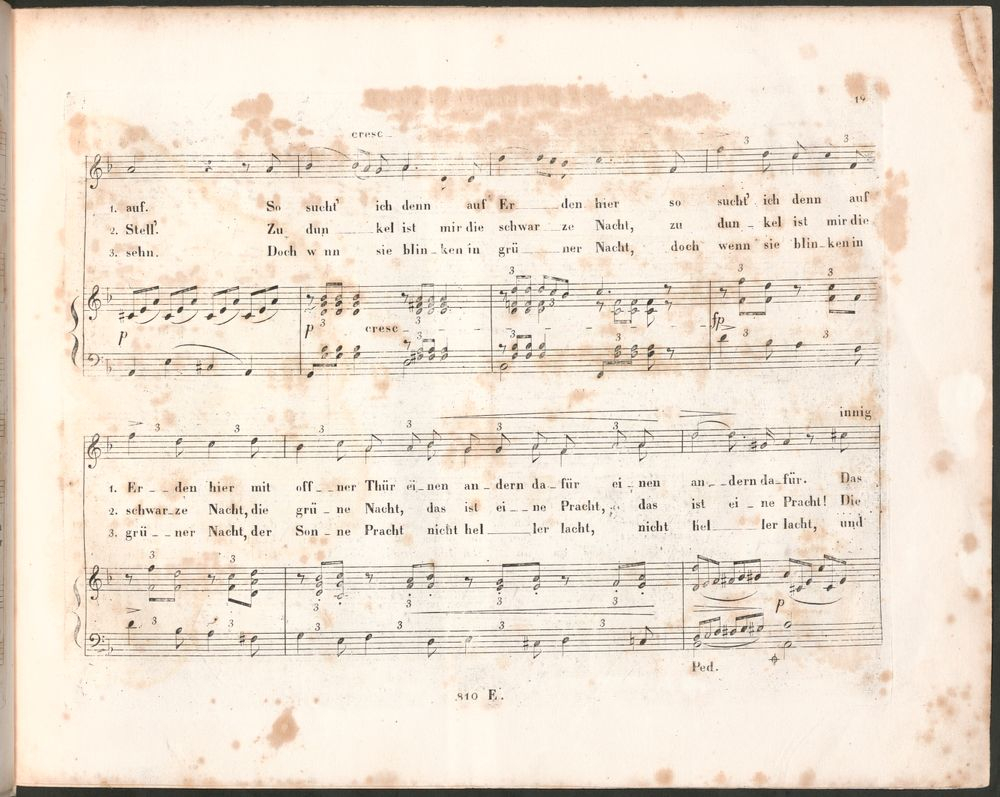 19
cresc
1. auf. So sucht' ich denn auf Er___den hier so sucht' ich denn auf
2. Stell'. Zu dun___kel ist mir die schwar__ze Nacht, zu dun_kel ist mir die
3. sehn. Doch w nn sie blin_ken in grü___ner Nacht, doch wenn sie blin_ken in
p p cresc fp
innig
1. Er__den hier mit off__ner Thür ei_nen an_dern da_für ei_nen an__dern da_für. Das
2. schwar_ze Nacht, die grü_ne Nacht, das ist ei__ne Pracht, das ist ei_ne Pracht! Die
3. grü__ner Nacht, der Son_ne Pracht nicht hel___ler lacht, nicht hel___ler lacht, und
p
Ped.
810 E.